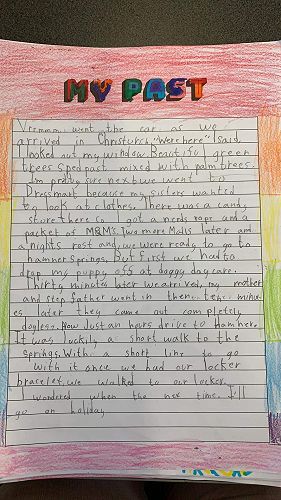 MY PAST
Vrcmmm, went the car as we
arrived in Christurch "Were here" I said.
I looked out my window. Beautiful green
trees sped past mixed with palm trees.
Im pretty sure next we went to
Dressmart because my sisters wanted
to look at clothes. There was a candy
store there so I got a nerds rope and a
packet of M&M's. Two more Malls later and
a nights rest and we were ready to go to
hammer Springs. But first we had to
drop my puppy off at doggy daycare.
Thirty minutes later we arrived, my mother
and step father went in then. ten minu-
es later they came out completely
dogless. Now just an hours drive to hamner.
It was luckily a short walk to the
springs. With a short line to go
with it once we had our locker
bracelet, we walked to our locker.
I wondered when the next time I'll
go on holiday